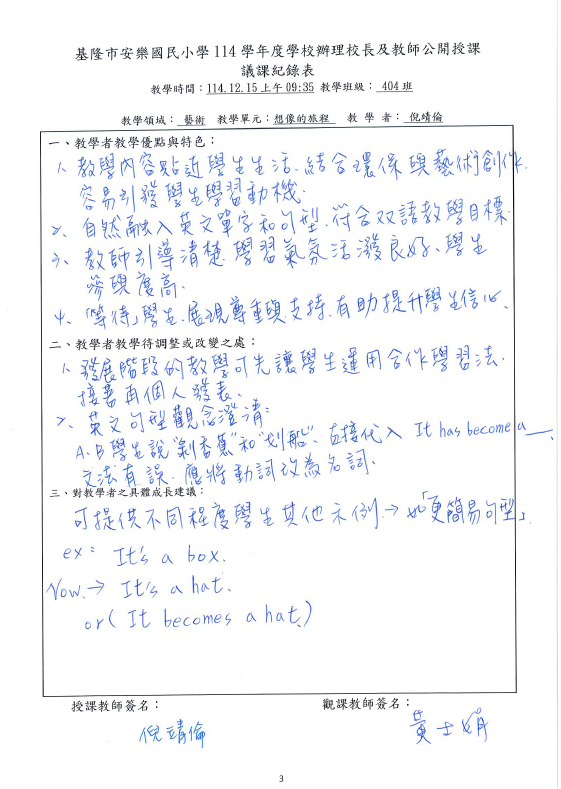 基隆市安樂國民小學 114 學年度學校辦理校長及教師公開授課
議課紀錄表
教學時間：114.12.15 上午 09:35 教學班級： 404 班
教學領域： 藝術 教學單元：想像的旅程 教 學 者： 倪靖倫
一、教學者教學優點與特色：
1、教學內容貼近學生生活、結合環保與藝術創作.
容易引發學生學習動機.
2、自然融入英文單字和句型、符合双語教學目標.
3、教師引導清楚、學習氣氛活潑良好、學生
參與度高.
4、「等待」學生、展現尊重與支持、有助提升學生信心、
二、教學者教學待調整或改變之處：
1、發展階段的教學可先讓學生運用合作學習法.
接著再個人發表.
2、英文句型觀念澄清：
A.B學生說"剝香蕉"和"划船"、直接代入 It has become a __
文法有誤. 應將動詞改為名詞.
三、對教學者之具體成長建議：
可提供不同程度學生其他示例.→如「更簡易句型」
ex: It's a box.
Now.→ It's a hat.
or( It becomes a hat.)
授課教師簽名： 觀課教師簽名：
倪靖倫 黃士娟
3